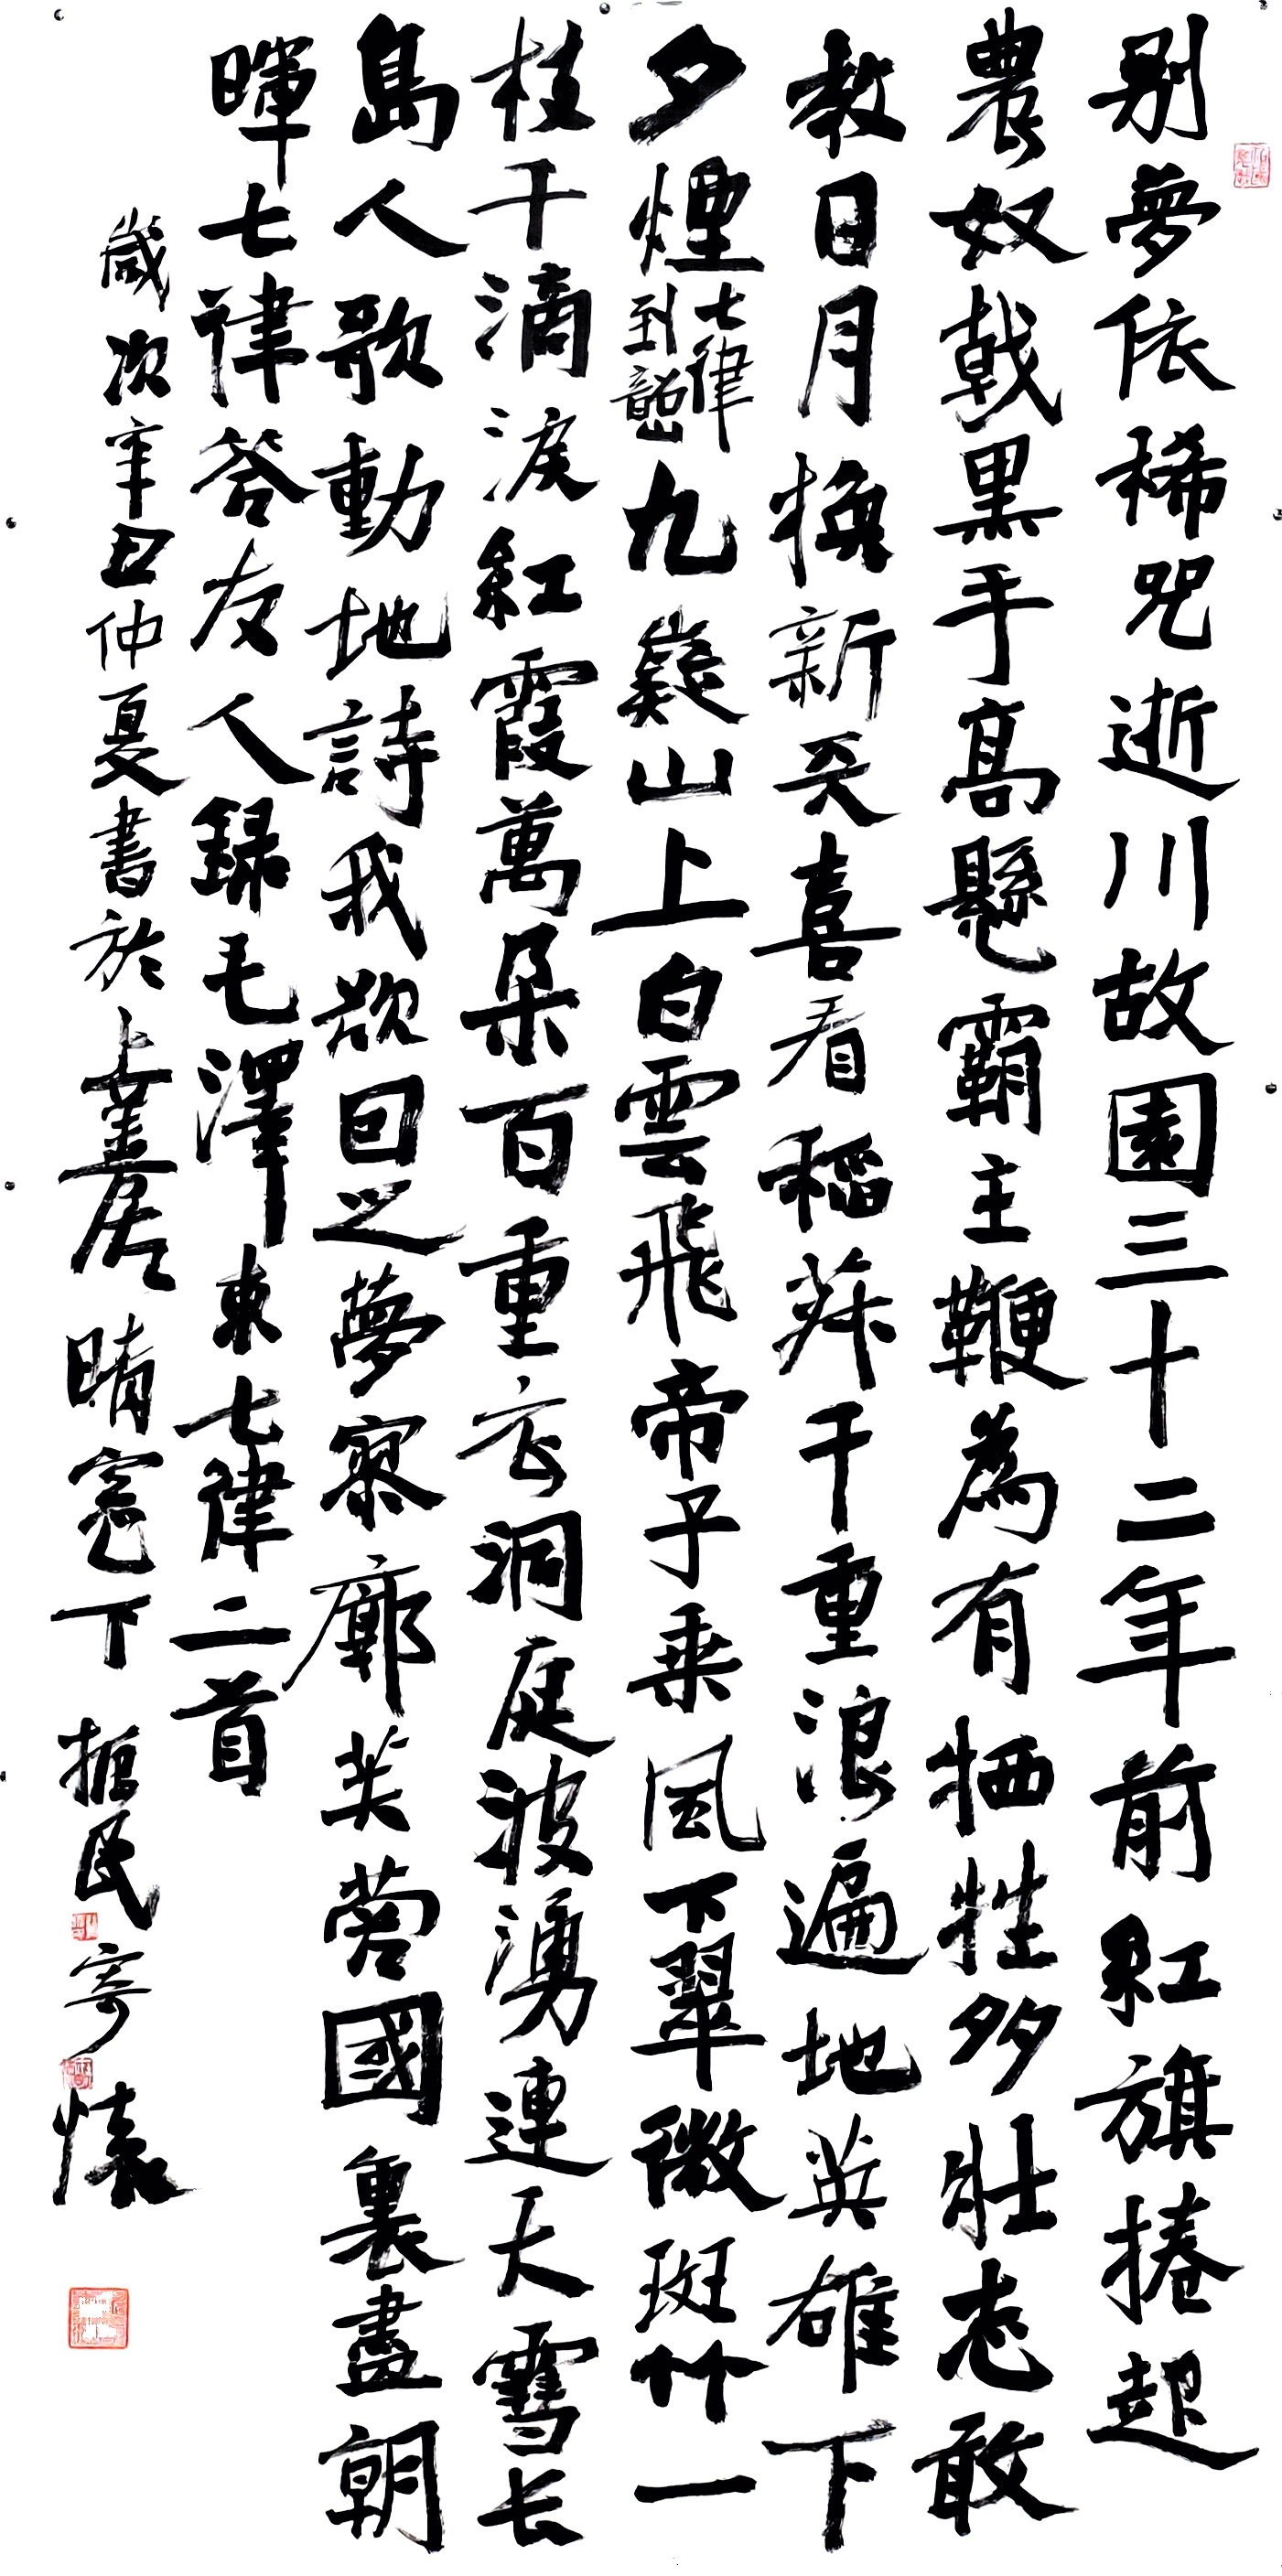 别夢依稀咒逝川故園三十二年前紅旗捲起
農奴戟黑手高懸霸主鞭為有犧牲多壯志敢
教日月換新天喜看稻菽千重浪遍地英雄下
夕煙七律到韶山九嶷山上白雲飛帝子乘風下翠微斑竹一
枝千滴淚紅霞萬朵百重衣洞庭波湧連天雪长
島人歌動地詩我欲因之夢寥廓芙蓉國裏盡朝
暉七律答友人録毛澤東七律二首
歲次辛丑仲夏書於上善居晴窗下振民寄懷